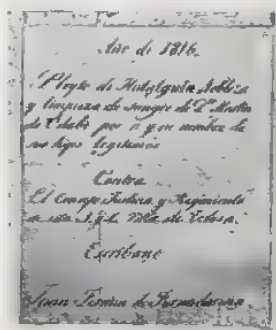 Año de 1816.
Pleyto de Hidalguia Nobleza
y limpieza de Sangre de Dn. Martin
de por si y en nombre de
sus hijos legitimos
Contra
El Concejo, Justicia y Regimiento
de esta Villa de
Escribano
Juan